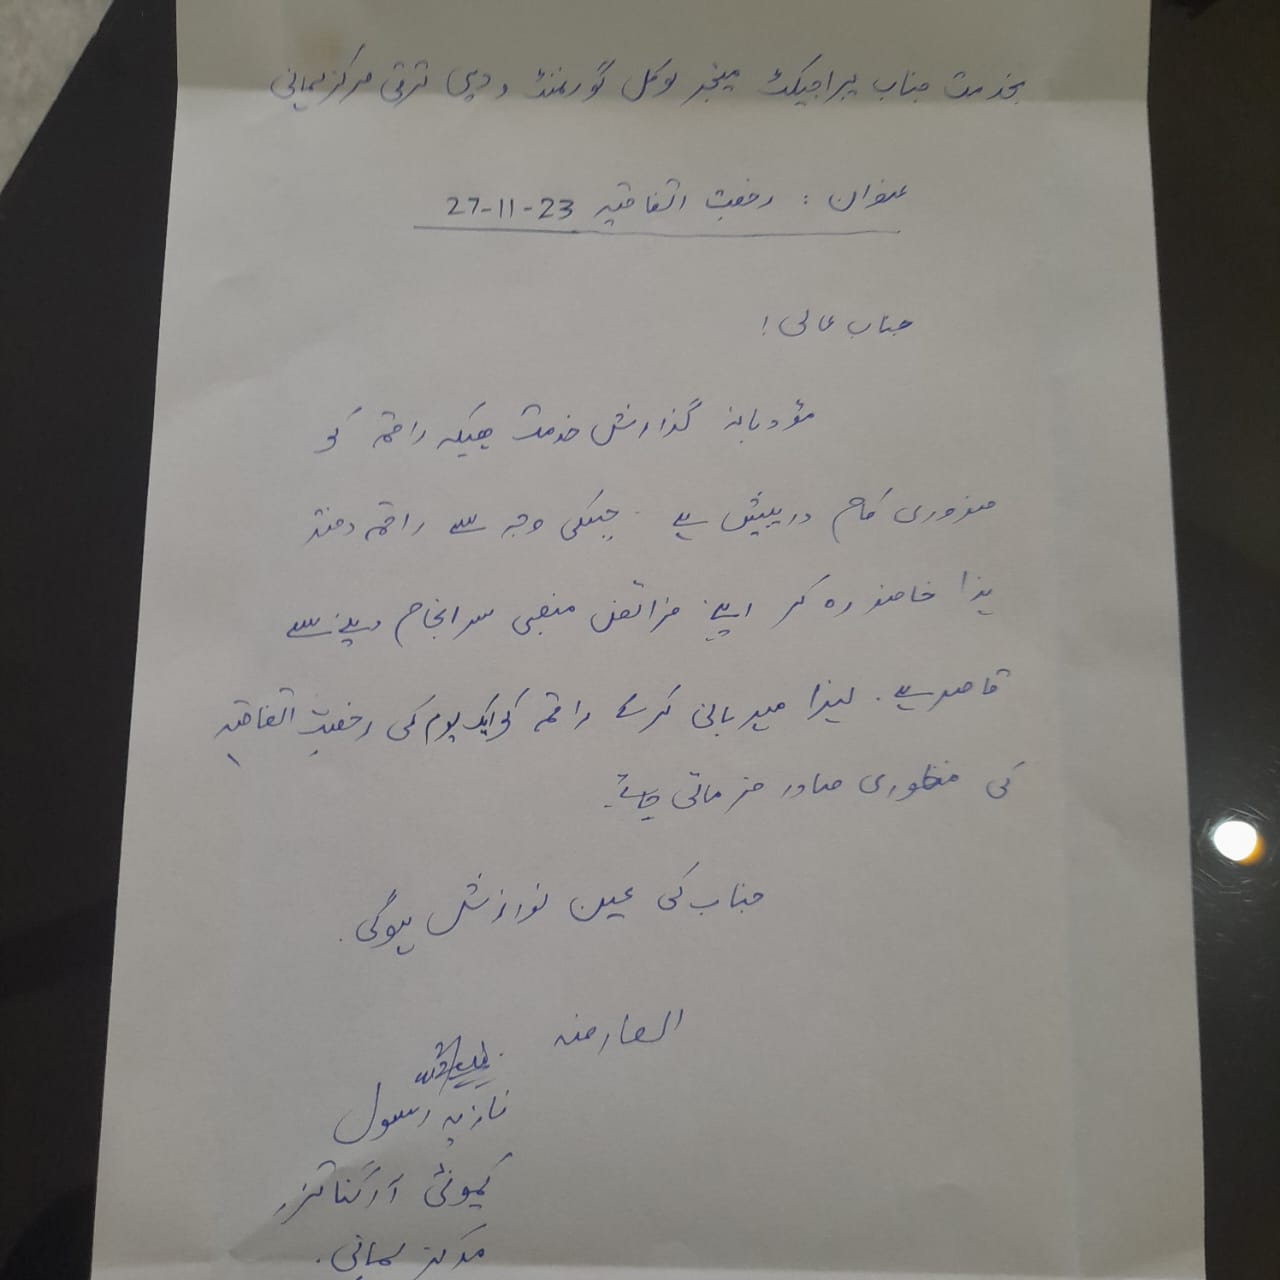 بخدمت جناب پراجیکٹ مینجر لوکل گورنمنٹ و دیہی ترقی مرکز لمیانی
عنوان : رخصت اتفاقیہ 23-11-27
جناب عالی !
مؤدبانہ گذارش خدمت ہیکہ راقمہ کو
ضروری کام درپیش ہے ۔ جسکی وجہ سے راقمہ دفتر
ہذا حاضر رہ کر اپنے فرائض منصبی سرانجام دینے سے
قاصر ہے ۔ لہذا مہربانی کرکے راقمہ کی ایک یوم کی رخصت اتفاقیہ
کی منظوری صادر فرمائی جائے ۔
جناب کی عین نوازش ہوگی ۔
العارضہ
نازیہ رسول
کمیونٹی آرگنائزر
مرکز لمیانی ۔